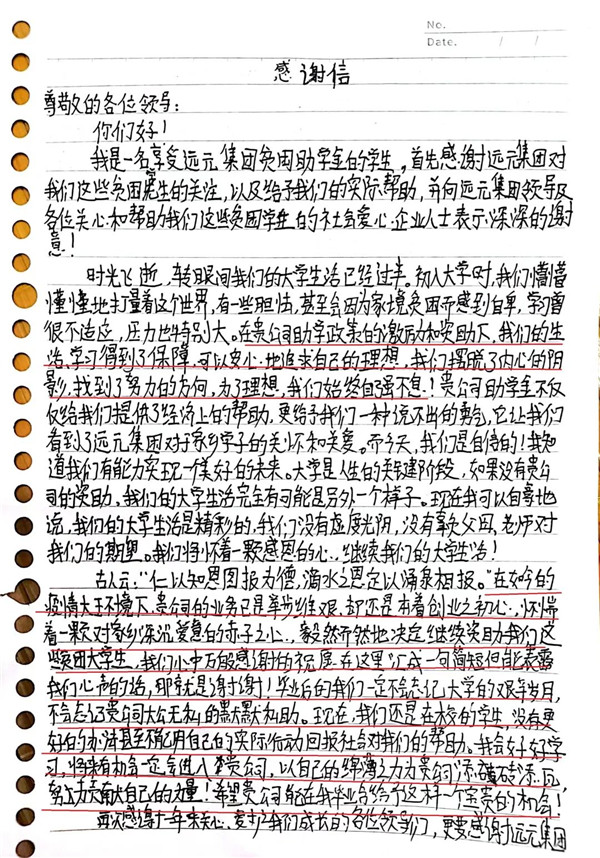 No.
Date. / /
感谢信
尊敬的各位领导：
你们好！
我是一名享受远元集团贫困助学金的学生，首先感谢远元集团对
我们这些贫困学生的关注，以及给予我们的实际帮助，并向远元集团领导及
各位关心和帮助我们这些贫困学生的社会爱心企业人士表示深深的谢
意！
时光飞逝，转眼间我们的大学生活已经过半。初入大学时，我们懵懵
懂懂地打量着这个世界，有一些胆怯，甚至会因为家境贫困而感到自卑，学习
很不适应，压力也特别大。在贵公司助学政策的激励和资助下，我们的生
活、学习得到了保障，可以安心地追求自己的理想，我们摆脱了内心的阴
影，找到了努力的方向，为了理想，我们始终自强不息！贵公司助学金不仅
仅给我们提供了经济上的帮助，更给予我们一种说不出的勇气，它让我们
看到了远元集团对于家乡学子的关怀和关爱。而今天，我们是自信的！我知
道我们有能力实现一个美好的未来。大学是人生的关键阶段，如果没有贵公
司的资助，我们的大学生活完全有可能是另外一个样子。现在我可以自豪地
说，我们的大学生活是精彩的，我们没有虚度光阴，没有辜负父母、老师对
我们的期望。我们将怀着一颗感恩的心，继续我们的大学生活！
古人云："仁以知恩图报为德，滴水之恩定以涌泉相报。"在如今的
疫情大环境下，贵公司的业务已是举步维艰，却还是有着创业之初心，怀惴
着一颗对家乡深沉爱意的赤子之心，毅然而然地决定继续资助我们这
些贫困大学生，我们心中万般感谢的祝愿在这里汇成一句简短但能表露
我们心声的话，那就是谢谢！毕业后的我们一定不会忘记大学的艰辛岁月，
不会忘记贵公司大公无私的默默资助。现在，我们还是在校的学生，没有更
好的办法甚至不能用自己的实际行动回报社会对我们的帮助。我会好好学
习，将来有机会一定会进入贵公司，以自己的绵薄之力为贵公司添砖添瓦，
努力贡献自己的力量！希望贵公司能在我毕业后给予这样一个宝贵的机会！
再次感谢十年来关心、爱护我们成长的各位领导们，更要感谢远元集团